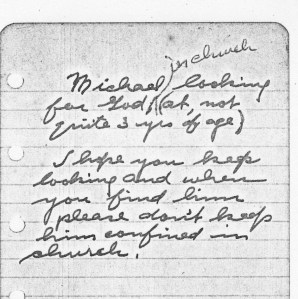 in church
Michael, looking
for God, (at, not
quite 3 yrs of age)
I hope you keep
looking and when
you find him
please don't keep
him confined in
church.